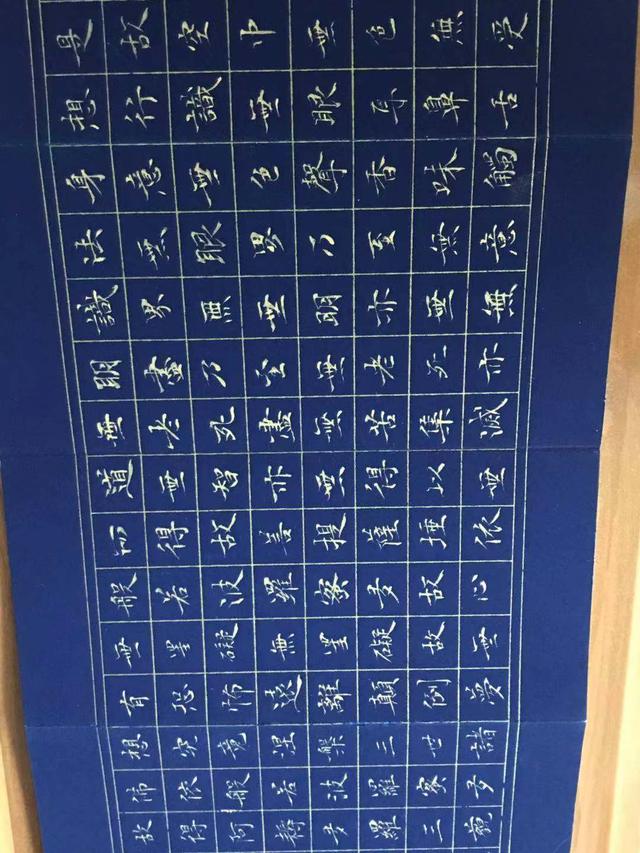 是故空中無色無受
想行識無眼耳鼻舌
身意無色聲香味觸
法無眼界乃至無意
識界無無明亦無無
明盡乃至無老死亦
無老死盡無苦集滅
道無智亦無得以無
所得故菩提薩埵依
般若波羅蜜多故心
無罣礙無罣礙故無
有恐怖遠離顛倒夢
想究竟涅槃三世諸
佛依般若波羅蜜多
故得阿耨多羅三藐